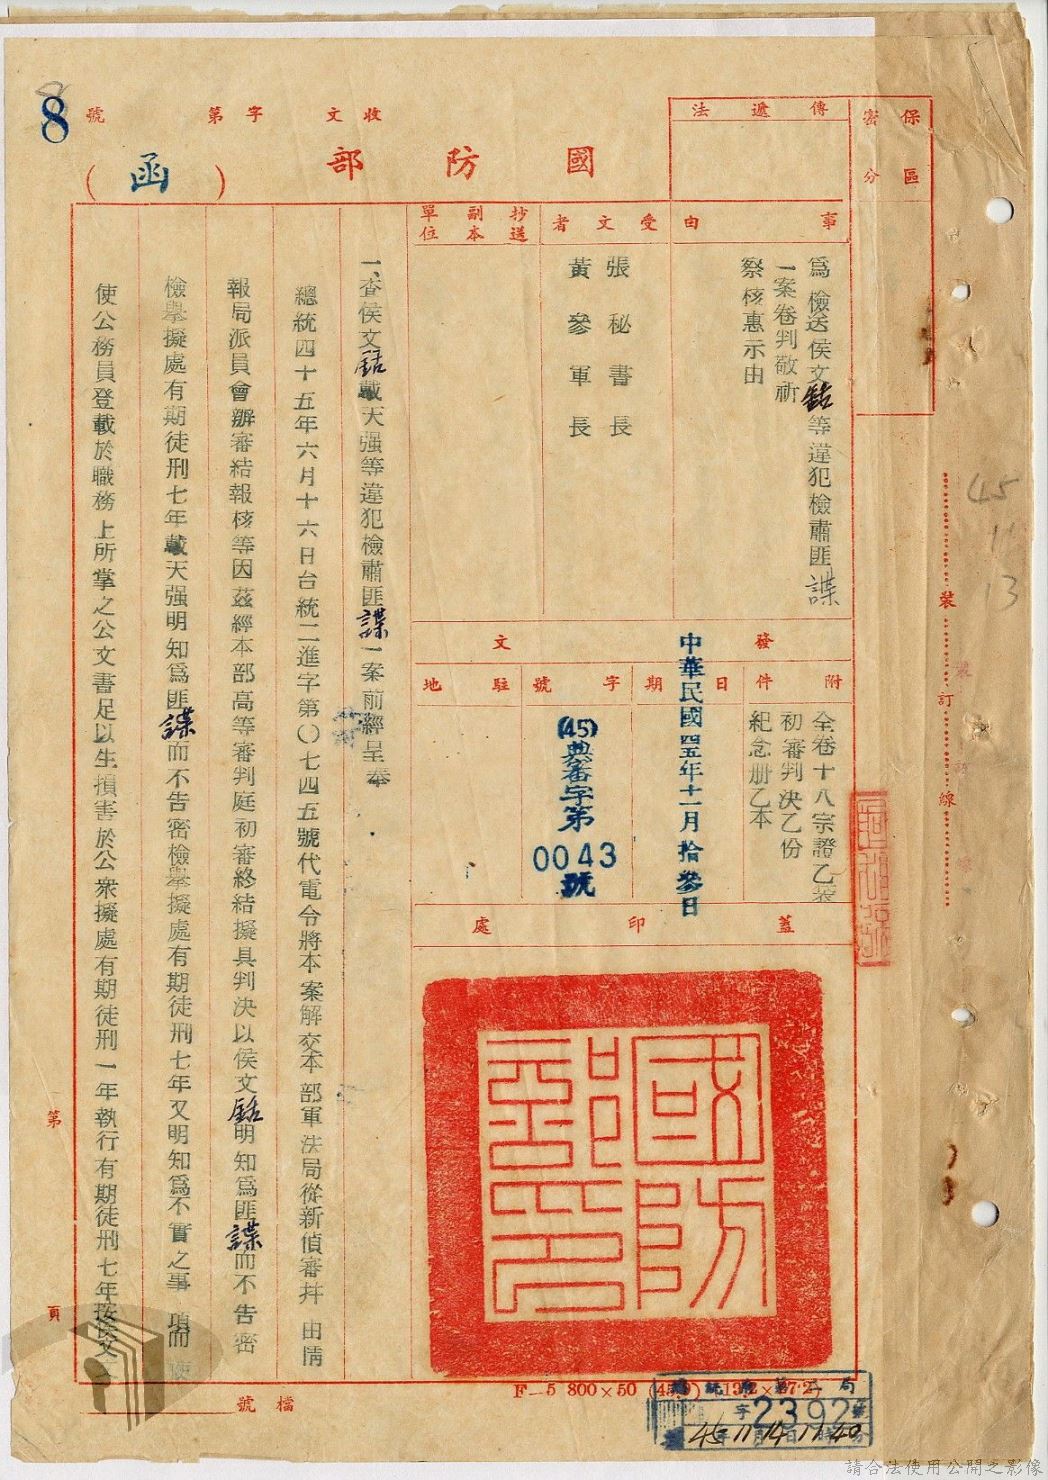 保密
區分
傳遞法
收文 字第 號
8
國防部
(函)
事由
為檢送侯文銘等違犯檢肅匪諜
一案卷判敬祈
察核惠示由
受文者
張秘書長
黃參軍長
抄送副本單位
發文
附件
全卷十八宗證乙袋
初審判決乙份
紀念册乙本
日期
中華民國四五年十一月拾參日
字號
(45)典審字第
0043
號
駐地
蓋印處
國防部印
一、查侯文銘戴天强等違犯檢肅匪諜一案前經呈奉
總統四十五年六月十六日台統二進字第〇七四五號代電令將本案解交本部軍法局從新偵審并由情
報局派員會辦審結報核等因茲經本部高等審判庭初審終結擬具判決以侯文銘明知為匪諜而不告密
檢舉擬處有期徒刑七年戴天强明知為匪諜而不告密檢舉擬處有期徒刑七年又明知為不實之事項而使
使公務員登載於職務上所掌之公文書足以生損害於公衆擬處有期徒刑一年執行有期徒刑七年按侯文
第 頁
檔號
裝訂線
45
11
13
F—5 800×50
2392
45年11月14日11時40分
請合法使用公開之影像